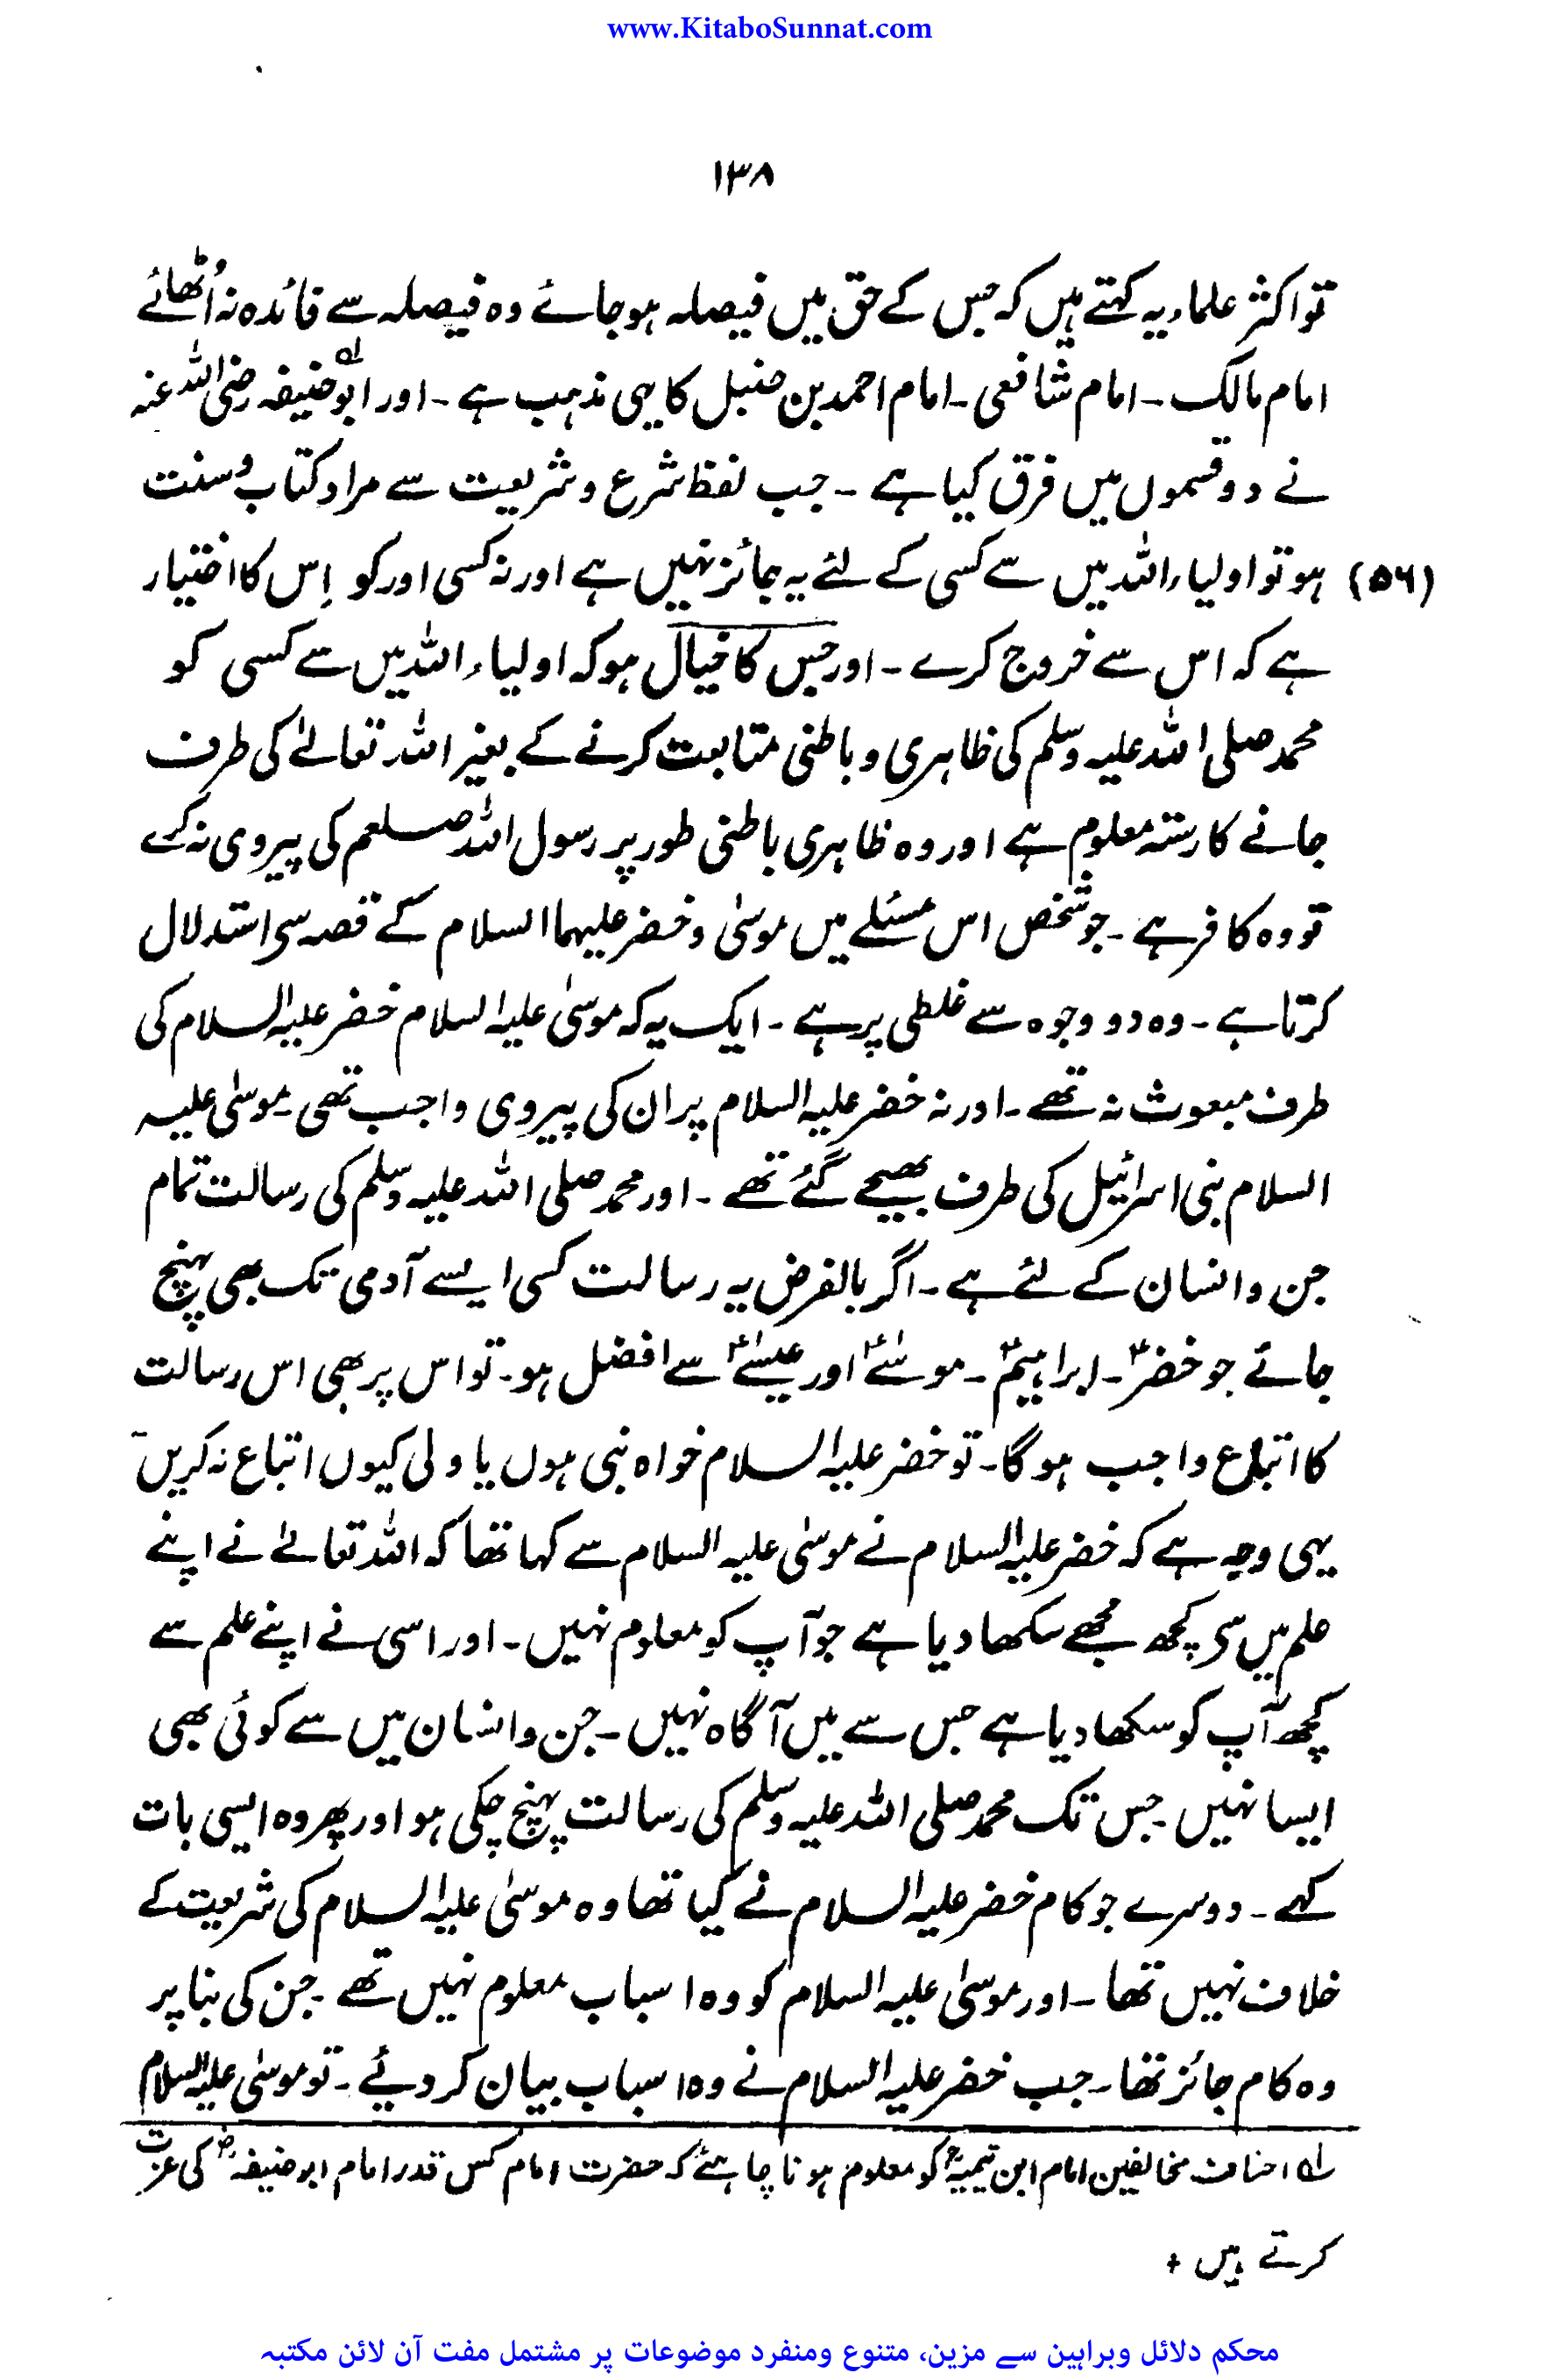 www.KitaboSunnat.com
۱۳۸
تو اکثر علماء یہ کہتے ہیں کہ جس کے حق میں فیصلہ ہو جائے وہ فیصلہ سے فائدہ نہ اُٹھائے
امام مالک ۔ امام شافعی ۔ امام احمد بن حنبل کا یہی مذہب ہے ۔ اور ابو حنیفہ لہ رضی اللہ عنہ
نے دو قسموں میں فرق کیا ہے ۔ جب لفظ شرع و شریعت سے مراد کتاب و سنت
(۵۶) ہو تو اولیاء اللہ میں سے کسی کے لئے یہ جائز نہیں ہے اور نہ کسی اور کو اِس کا اختیار
ہے کہ اس سے خروج کرے ۔ اور جس کا خیال ہو کہ اولیاء اللہ میں سے کسی کو
محمد صلی اللہ علیہ وسلم کی ظاہری و باطنی متابعت کرنے کے بغیر اللہ تعالےٰ کی طرف
جانے کا رستہ معلوم ہے اور وہ ظاہری باطنی طور پر رسول اللہ صلعم کی پیروی نہ کرے
تو وہ کافر ہے ۔ جو شخص اس مسئلے میں موسیٰ و خضر علیہما السلام کے قصہ سی استدلال
کرتا ہے ۔ وہ دو وجوہ سے غلطی پر ہے ۔ ایک یہ کہ موسیٰ علیہ السلام خضر علیہ السلام کی
طرف مبعوث نہ تھے ۔ اور نہ خضر علیہ السلام پر ان کی پیروی واجب تھی ۔ موسیٰ علیہ
السلام بنی اسرائیل کی طرف بھیجے گئے تھے ۔ اور محمد صلی اللہ علیہ وسلم کی رسالت تمام
جن و انسان کے لئے ہے ۔ اگر بالفرض یہ رسالت کسی ایسے آدمی تک بھی پہنچ
جائے جو خضرؑ ۔ ابراہیمؑ ۔ موسےٰؑ اور عیسےٰؑ سے افضل ہو ۔ تو اس پر بھی اس رسالت
کا اتباع واجب ہو گا ۔ تو خضر علیہ السلام خواہ نبی ہوں یا ولی کیوں اتباع نہ کریں ۔
یہی وجہ ہے کہ خضر علیہ السلام نے موسیٰ علیہ السلام سے کہا تھا کہ اللہ تعالےٰ نے اپنے
علم میں سی کچھ مجھے سکھا دیا ہے جو آپ کو معلوم نہیں ۔ اور اسی نے اپنے علم سے
کچھ آپ کو سکھا دیا ہے جس سے میں آگاہ نہیں ۔ جن و انسان میں سے کوئی بھی
ایسا نہیں ۔ جس تک محمد صلی اللہ علیہ وسلم کی رسالت پہنچ چکی ہو اور پھر وہ ایسی بات
کہے ۔ دوسرے جو کام خضر علیہ السلام نے کیا تھا وہ موسیٰ علیہ السلام کی شریعت کے
خلاف نہیں تھا ۔ اور موسیٰ علیہ السلام کو وہ اسباب معلوم نہیں تھے ۔ جن کی بنا پر
وہ کام جائز تھا ۔ جب خضر علیہ السلام نے وہ اسباب بیان کر دیئے ۔ تو موسیٰ علیہ السلام
لہ احناف مخالفین امام ابن تیمیہؒ کو معلوم ہونا چاہئے کہ حضرت امام کس قدر امام ابو حنیفہؓ کی عزت
کرتے ہیں +
محکم دلائل وبراہین سے مزین، متنوع ومنفرد موضوعات پر مشتمل مفت آن لائن مکتبہ